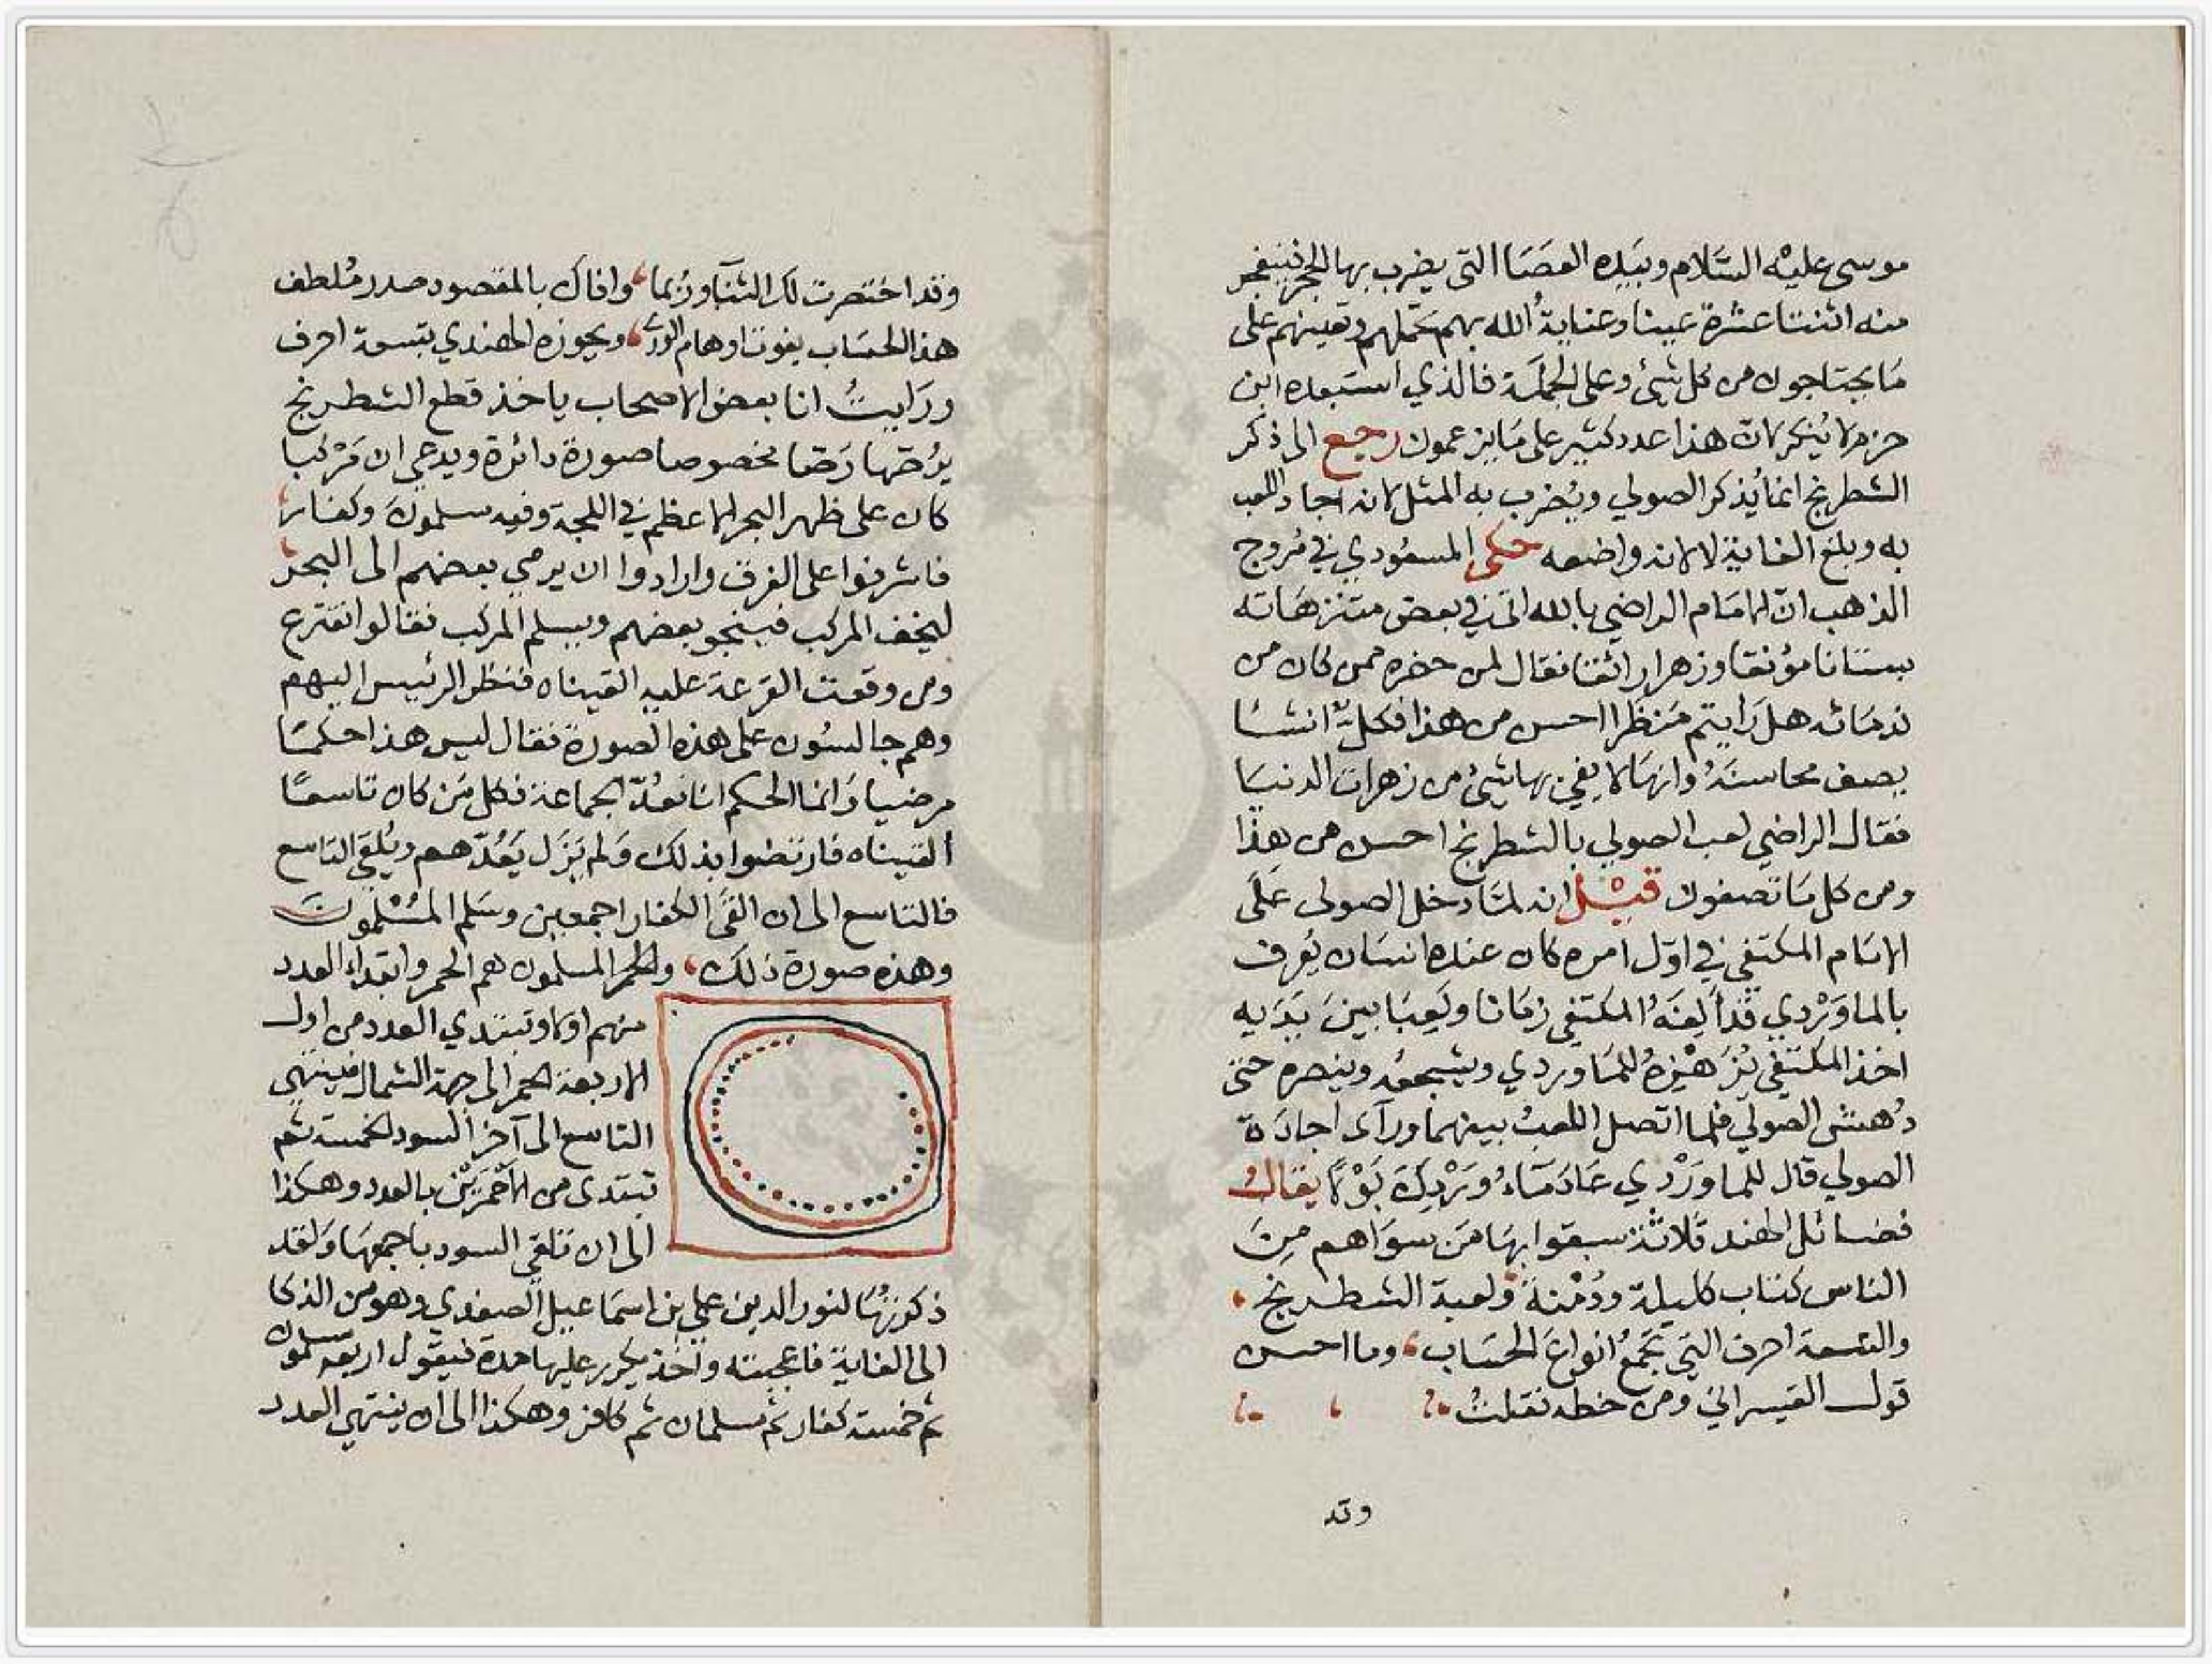 موسى عليه السَّلام وبيَده العصَا التى يضرب بها الحجر فينفجر
منه اثنتا عشرة عينا وعناية الله بهم تحملهم وتعينهم على
مَا يحتاجون من كل شئ وعلى الجملة فالذي استبعده ابن
حزم لا يُنكر لان هذا عدد كثير على مَا يزعمون رجع الى ذكر
الشطرنج انما يُذكر الصولي ويُضرب به المثل لانه اجاد اللعب
به وبلغ الغاية لا لانه واضعه حكى المسعودي في مُروج
الذهب انّ الامَام الراضي بالله اتى في بعض متنزهَاته
بستانا مؤنقا وزهرا رائقا فقال لمن حضره ممن كان من
ندمَائه هل رَايتم مَنظرا احسن من هذا فكلٌّ انشَا
يصف محاسنَهُ وانهَا لا يفي بها شئ من زهرات الدنيَا
فقال الراضي لعب الصولي بالشطرنج احسن من هذا
ومن كل مَا تصفون قيْل انه لمَّا دخل الصولى عَلَى
الامَام المكتفي في اوّل امره كان عنده انسَان يُعرف
بالماوَرْدي قد اَلِفَهُ المكتفى زمَانا ولَعِبَا بينَ يَدَيه
اخذ المكتفي يُزَهْزِهُ للمَاوردي ويشجعُه وينصره حتى
دُهش الصولي فلما اتصل اللعبُ بينهما ورآى اجادَة
الصولي قال للماوَرْدي عَادَ مَاءُ وَرْدِكَ بَوْلًا يقالُ
فضائل الهند ثَلاثة سبقوا بهَا مَن سوَاهم مِنَ
الناس كتاب كليلة ودُمْنةَ ولعبة الشطرنج
والتسعة احرف التي تجمعُ انواعَ الحسَاب وما احسن
قول القيسراني ومن خطه نقلتُ
وقد
وقد اختصرت لك الثنآ وربما وافاك بالمقصود صدر مُلطف
هذا الحسَاب يفوت اوهام الورى ويحوزه الهندي بتسعة احرف
ورَايتُ انا بعض الاصحاب ياخذ قطع الشطرنج
يرُصّها رَصّا مخصوصا صورة دائرة ويدعي ان مَرْكبا
كان على ظهر البحر الاعظم في اللجة وفيه مسلمونَ وكفار
فاشرفوا على الغرق وارادوا ان يرمي بعضهم الى البحر
ليخف المركب فينجو بعضهم ويسلم المركب فقالوا نقترع
ومن وقعت القرعة عليه القيناه فنظر الرئيس اليهم
وهم جالسُون على هذه الصورة فقال ليس هذا حكمًا
مرضيا وَانما الحكم انا نعُدّ الجماعة فكل مَن كان تاسعًا
القيناه فارتضوا بذلك وَلم يَزَل يَعُدّهم ويُلقي التاسع
فالتاسع الى ان القَى الكفار اجمعين وسَلم المُسْلمونَ
وهذه صورة ذلك والحمر المسلمون هم الحمر وابتداء العدد
منهم اولا وتبتدي العدد من اول
الاربعة الحمر الى جهة الشمال فينتهى
التاسع الى آخر السود الخمسة ثم
تبتدى من الاَحْمَرَيْن بالعدد وهكذا
الى ان تلقى السود باجمعهَا وَلقد
ذكرتهَا لنور الدين علي بن اسمَاعيل الصفدي وهو من الذكا
الى الغاية فاعجبته واَخذ يكرر عليها مدة فيقول اربعة مسلمون
ثم خمسة كفار ثم مسلمان ثم كافر وهكذا الى ان ينتهي العدد